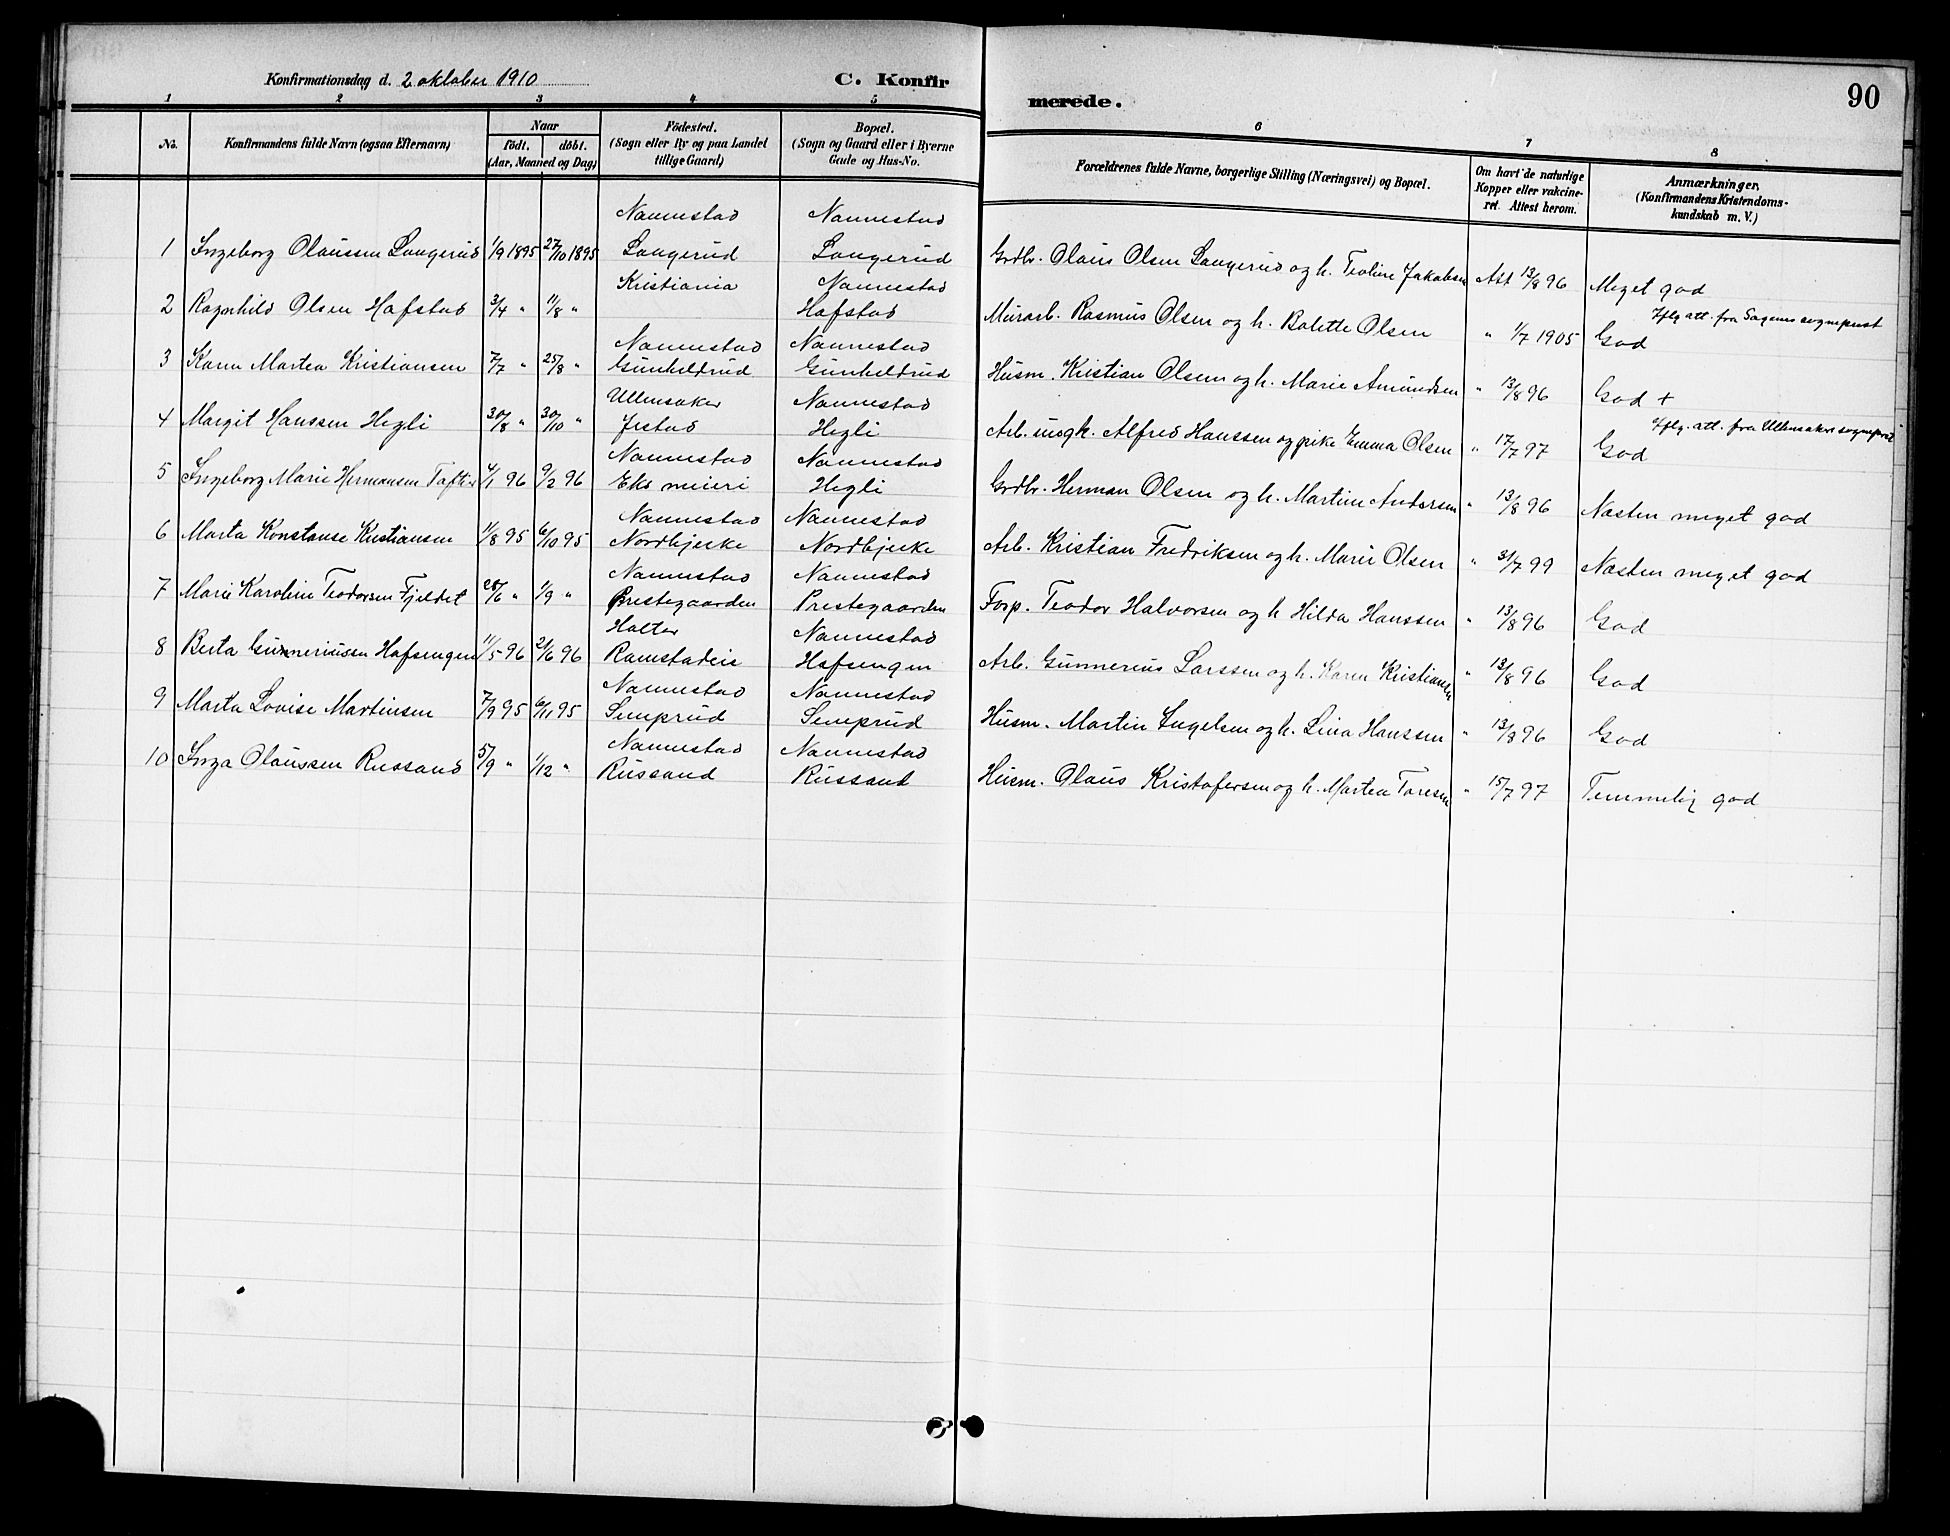 Konfirmationsdag d. 2 oktober 1910
C. Konfirmerede.
90
1 2 3 4 5 6 7 8
No.
Konfirmandens fulde Navn (ogsaa Efternavn)
Naar
födt. döbt.
(Aar, Maaned og Dag)
Födested.
(Sogn eller By og paa Landet
tillige Gaard)
Bopæl.
(Sogn og Gaard eller i Byerne
Gade og Hus-No.
Forældrenes fulde Navne, borgerlige Stilling (Næringsvei) og Bopæl.
Om havt de naturlige
Kopper eller vakcine-
ret. Attest herom.
Anmærkninger.
(Konfirmandens Kristendoms-
kundskab m. V.)
Nannestad Nannestad
1 Ingeborg Olaussen Laugerud 1/9 1895 27/10 1895 Laugerud Laugerud Grdbr. Olaus Olsen Laugerud og h. Teoline Jakobsen Att 13/8 96 Meget god
Kristiania Nannestad
2 Ragnhild Olsen Hafstad 3/4 " 11/8 " Hafstad Murarb. Rasmus Olsen og h. Bolette Olsen " 1/7 1905 God
Iflg att. fra Sagenes sogneprest
Nannestad Nannestad
3 Karen Martea Kristiansen 7/7 " 25/8 " Gunhildrud Gunhildrud Husm. Kristian Olsen og h. Marie Amundsen " 13/8 96 God +
Ullensaker Nannestad
4 Margit Hanssen Hegli 30/8 " 30/10 " Jestad Hegli Arb. ungk. Alfred Hanssen og pike Emma Olsen " 17/7 97 God
Iflg. att. fra Ullensakers sogneprest
Nannestad Nannestad
5 Ingeborg Marie Hermansen 4/1 96 9/2 96 Eks meieri Hegli Grdbr. Herman Olsen og h. Martine Andersen " 13/8 96 Næsten meget god
Nannestad Nannestad
6 Marta Konstanse Kristiansen 1/8 95 6/10 95 Nordbjerke Nordbjerke Arb. Kristian Fredriksen og h. Marie Olsen " 31/7 99 Næsten meget god
Nannestad Nannestad
7 Marie Karoline Teodorsen Fjeldet 28/6 " 1/9 " Prestegaarden Prestegaarden Forp. Teodor Halvorsen og h Hilda Hanssen " 13/8 96 God
Holter Nannestad
8 Berta Gunneriussen Hafsengen 11/5 96 21/6 96 Ramstadeie Hafsengen Arb. Gunnerius Larssen og h. Karen Kristiansen " 13/8 96 God
Nannestad Nannestad
9 Marta Lovise Martinsen 7/9 95 6/11 95 Semprud Semprud Husm. Martin Engelsen og h. Lina Hanssen " 13/8 96 God
Nannestad Nannestad
10 Inga Olaussen Russand 5/9 " 1/12 " Russand Russand Husm. Olaus Kristofersen og h. Martea Toresen " 15/7 97 Temmelig god